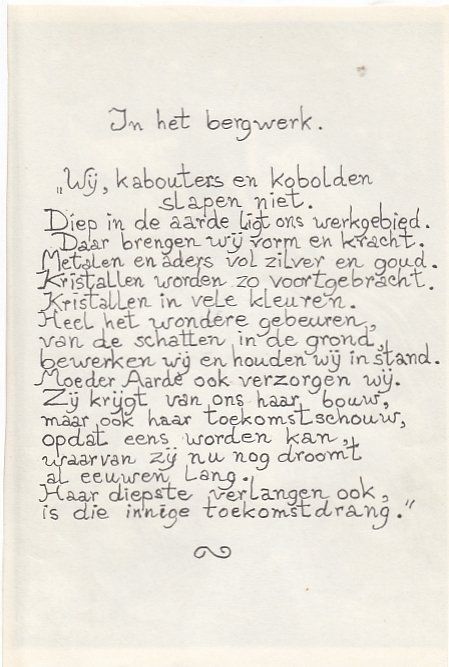 In het bergwerk.
„Wij, kabouters en kobolden
slapen niet.
Diep in de aarde ligt ons werkgebied.
Daar brengen wij vorm en kracht.
Metalen en aders vol zilver en goud.
Kristallen worden zo voortgebracht.
Kristallen in vele kleuren.
Heel het wondere gebeuren,
van de schatten in de grond,
bewerken wij en houden wij in stand.
Moeder Aarde ook verzorgen wij.
Zij krijgt van ons haar bouw,
maar ook haar toekomstschouw,
opdat eens worden kan,
waarvan zij nu nog droomt
al eeuwen lang.
Haar diepste verlangen ook,
is die innige toekomstdrang."